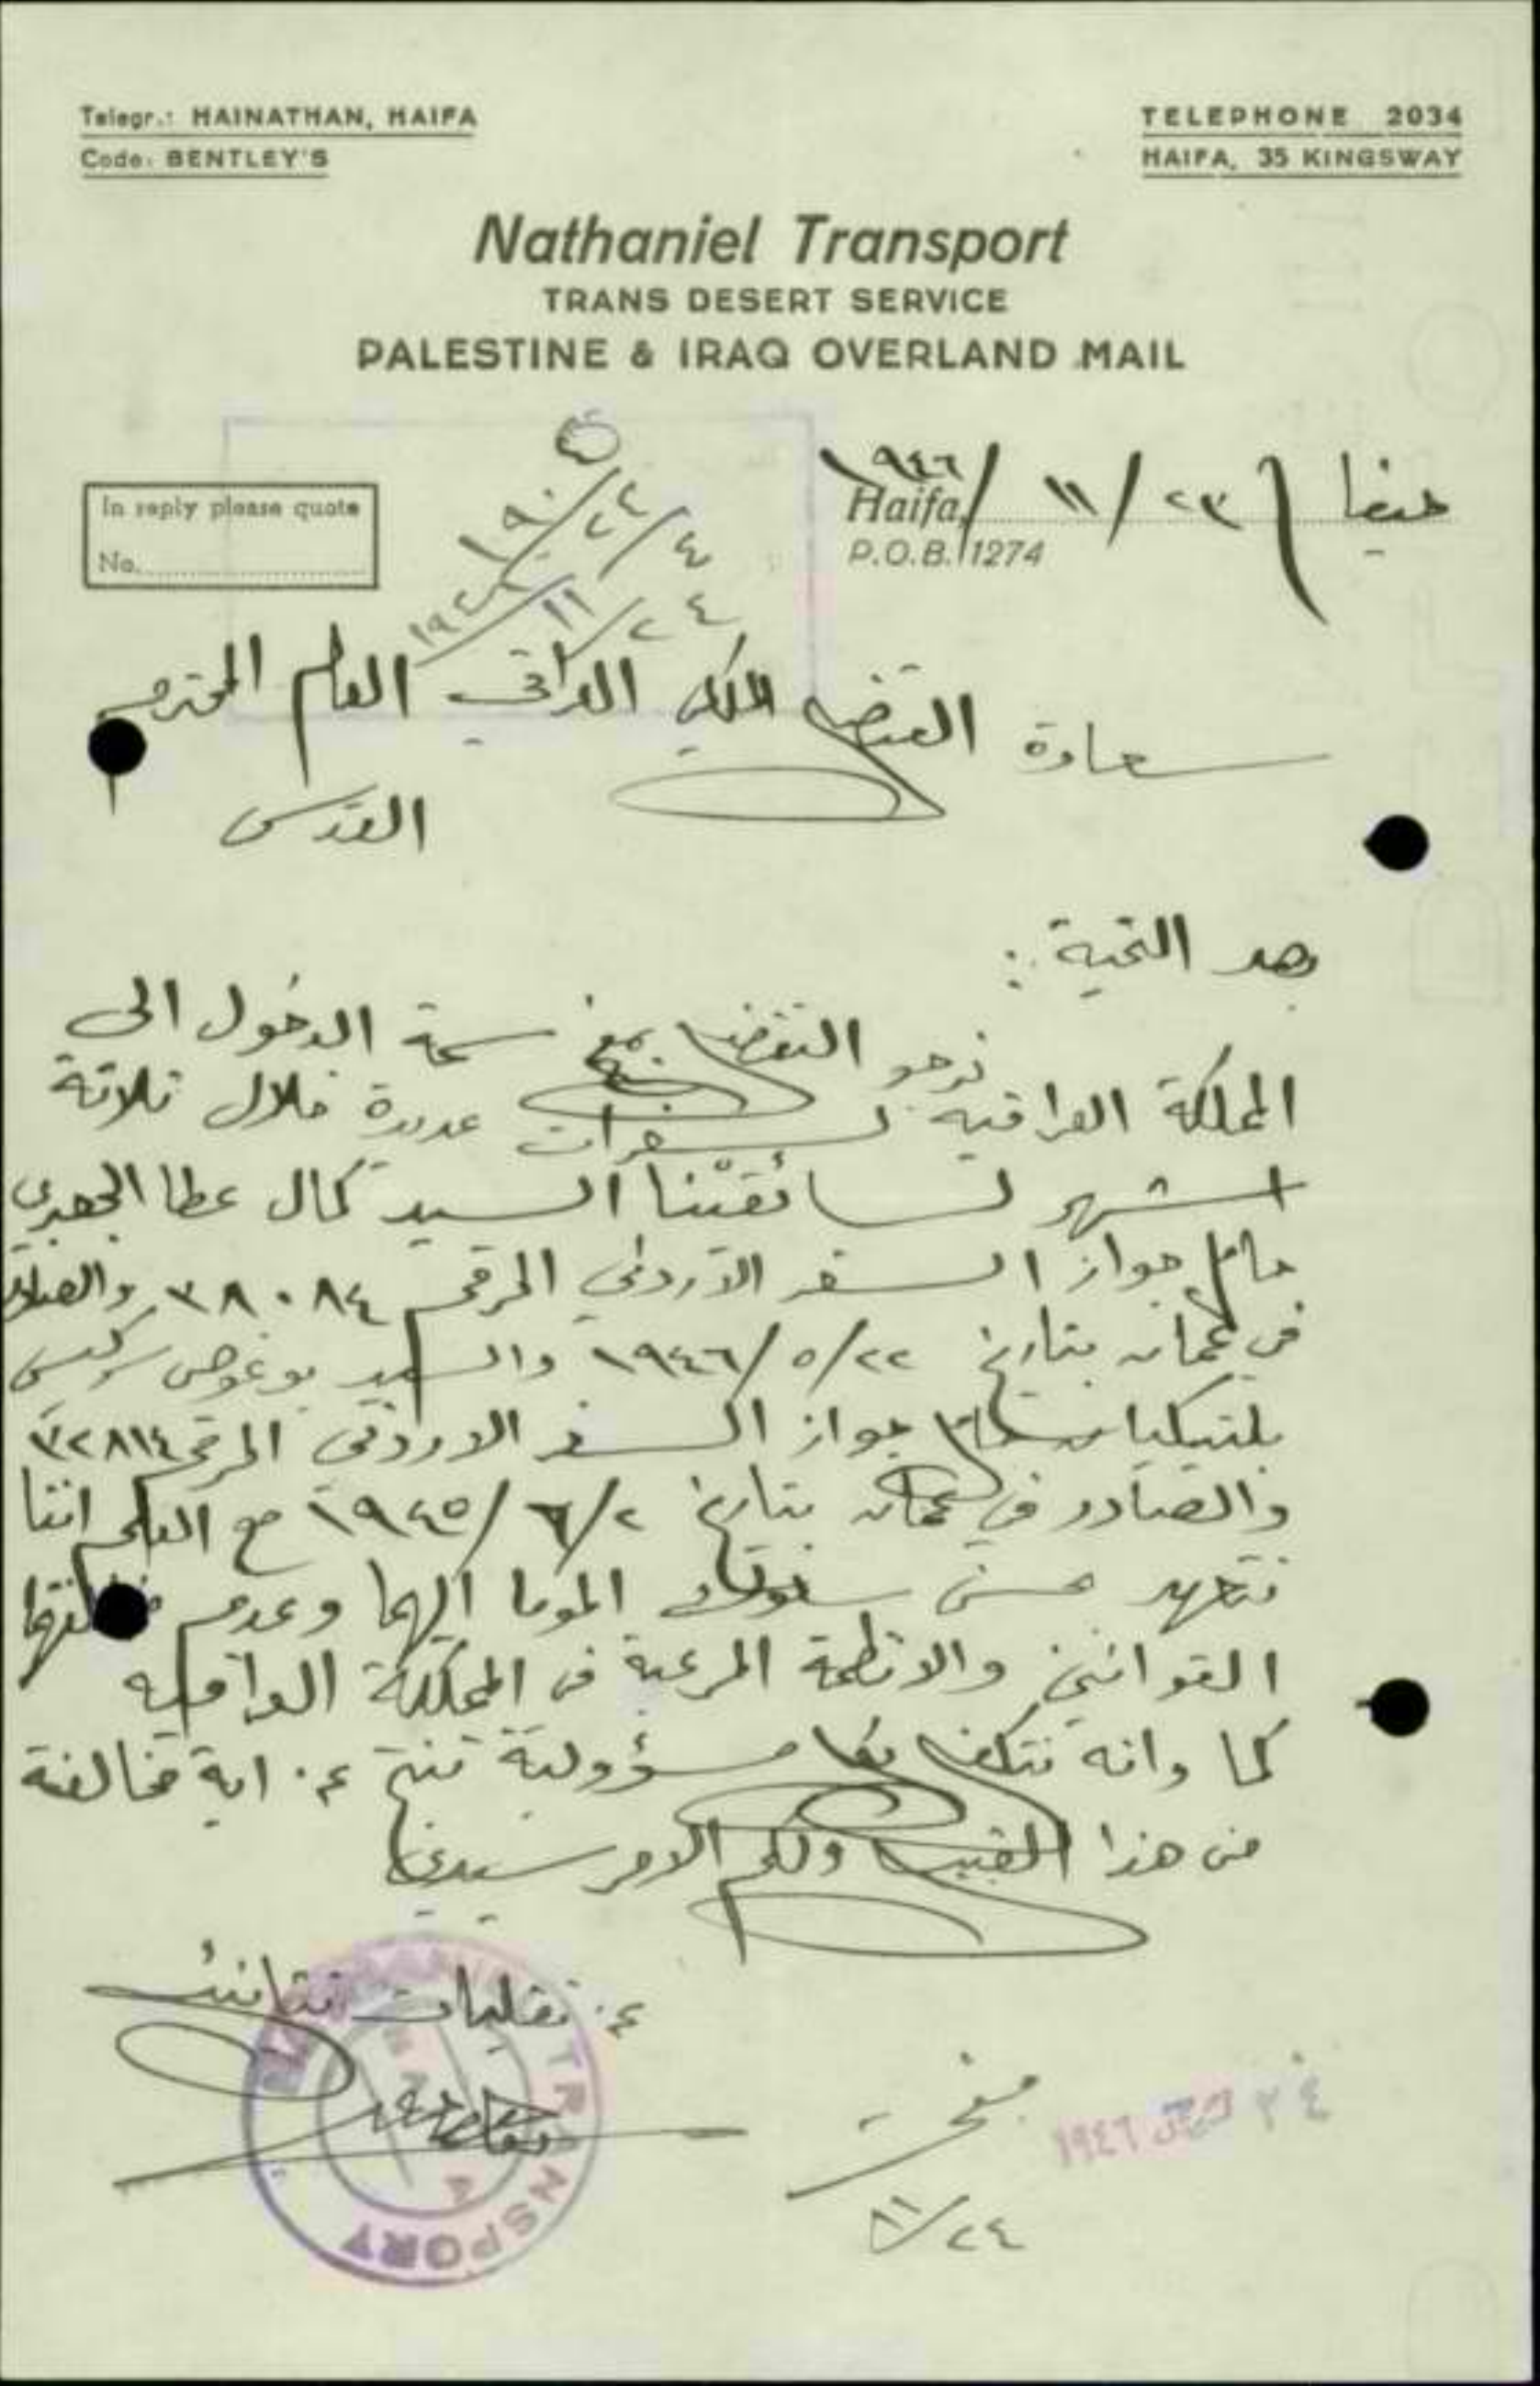 Telegr.: HAINATHAN, HAIFA
Code: BENTLEY'S
TELEPHONE 2034
HAIFA, 35 KINGSWAY
Nathaniel Transport
TRANS DESERT SERVICE
PALESTINE & IRAQ OVERLAND MAIL
In reply please quote
No.
Haifa,
P.O.B. 1274
حيفا ٢٣/١١/١٩٤٦
٢٤/١١/١٩٤٦
سعادة القنصل الملكي العراقي العام المحترم
القدس
بعد التحية:
نرجو التفضل بمنح سمة الدخول الى
المملكة العراقية لسفرات عديدة خلال ثلاثة
اشهر لسائقينا السيد كمال عطا
حامل جواز السفر الاردني المرقم ٣٨٠٨٤ والصادر
في عمان بتاريخ ٢٢/٥/١٩٤٦ والسيد بوغوص سركيس
حامل جواز السفر الاردني المرقم ٣٢٨١٤
والصادر في عمان بتاريخ ٢/٦/١٩٤٥ مع العلم اننا
نتعهد حسن سلوك الموما اليهما وعدم
القوانين والانظمة المرعية في المملكة العراقية
كما وانه نتكفل بكل مسؤولية تنتج عن اية مخالفة
من هذا القبيل ولكم الامر سيدي
عن نقليات نتانيل
TRANSPORT
٢٤/١١
٢٤ ١٩٤٦